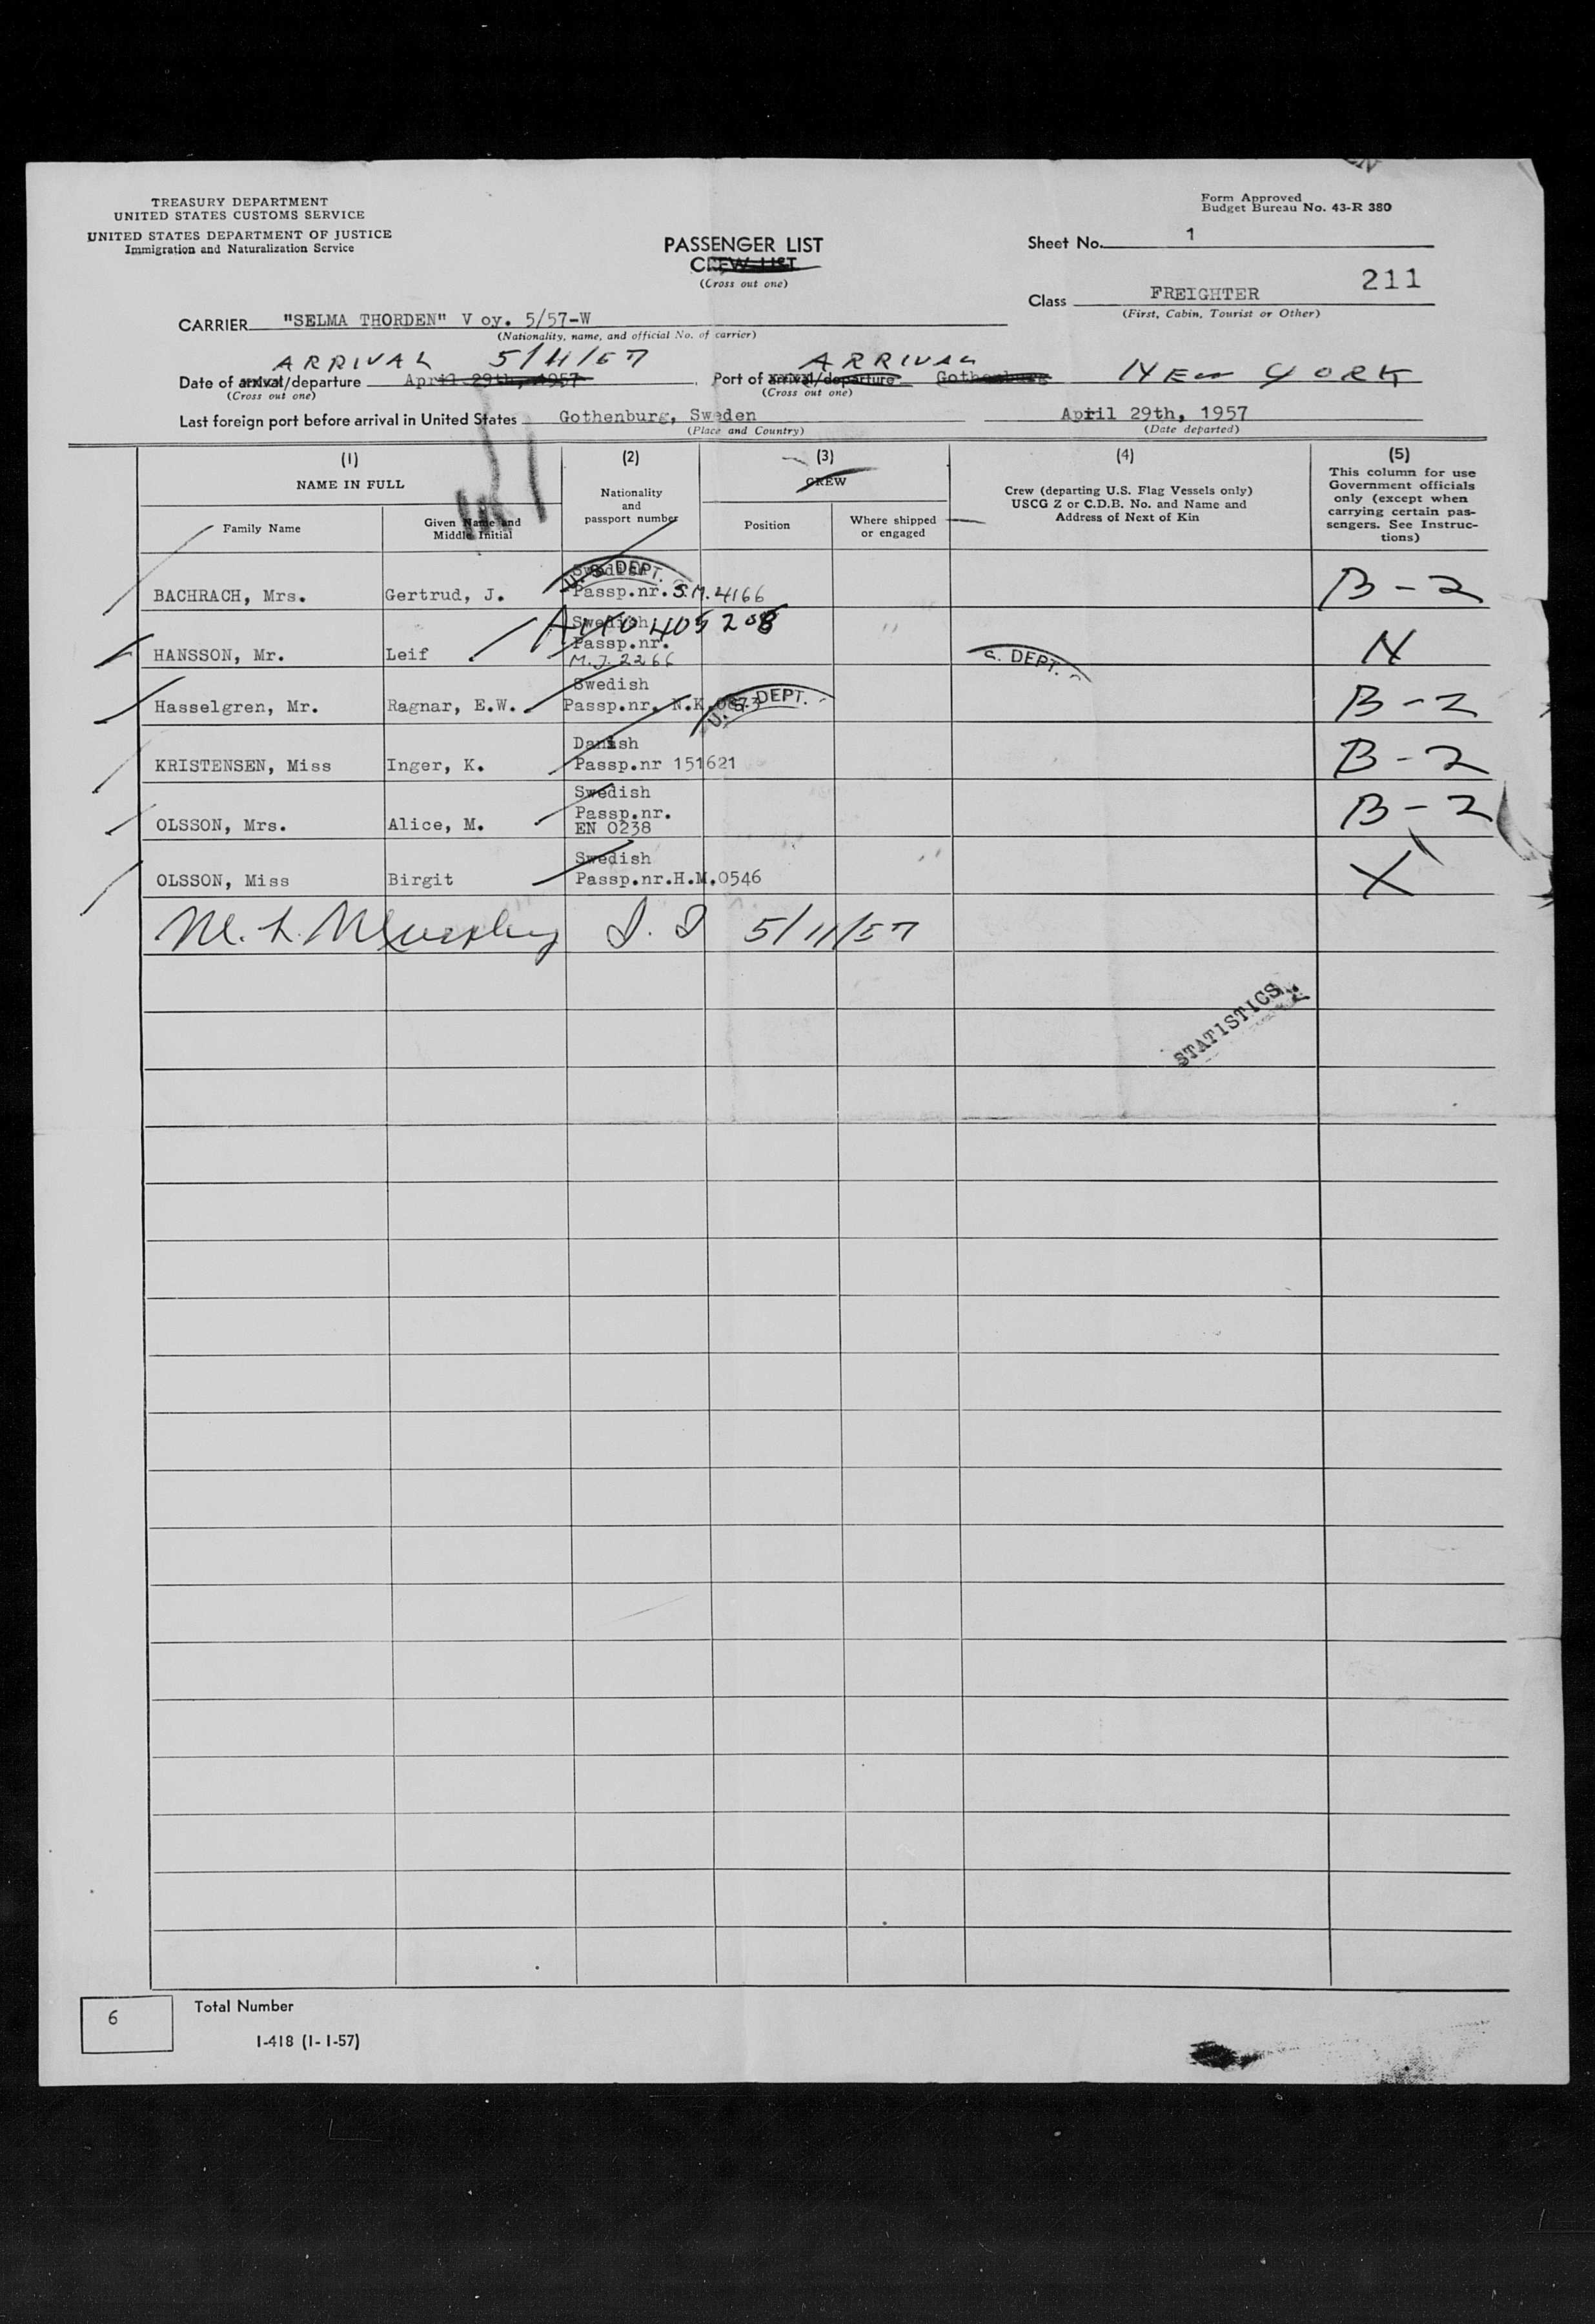 TREASURY DEPARTMENT
UNITED STATES CUSTOMS SERVICE
UNITED STATES DEPARTMENT OF JUSTICE
Immigration and Naturalization Service
Form Approved
Budget Bureau No. 43-R 380
PASSENGER LIST
CREW LIST
(Cross out one)
Sheet No. 1
211
Class FREIGHTER
(First, Cabin, Tourist or Other)
CARRIER "SELMA THORDEN" V oy. 5/57-W
(Nationality, name, and official No. of carrier)
ARRIVAL 5/11/57 ARRIVAL
Date of arrival/departure April 29th, 1957 Port of arrival/departure Gothenburg NEW YORK
(Cross out one) (Cross out one)
Last foreign port before arrival in United States Gothenburg, Sweden April 29th, 1957
(Place and Country) (Date departed)
(1) (2) (3) (4) (5)
NAME IN FULL
Family Name
Given Name and
Middle Initial
Nationality
and
passport number
CREW
Position
Where shipped
or engaged
Crew (departing U.S. Flag Vessels only)
USCG Z or C.D.B. No. and Name and
Address of Next of Kin
This column for use
Government officials
only (except when
carrying certain pas-
sengers. See Instruc-
tions)
Swedish
U. S. DEPT.
BACHRACH, Mrs. Gertrud, J. Passp.nr. S.M. 4166 B-2
Swedish
405 208
Passp.nr.
HANSSON, Mr. Leif M.J. 2266 N
S. DEPT.
Swedish
Hasselgren, Mr. Ragnar, E.W. Passp.nr. N.K. B-2
U. S. DEPT.
Danish
KRISTENSEN, Miss Inger, K. Passp.nr 151621 B-2
Swedish
Passp.nr.
OLSSON, Mrs. Alice, M. EN 0238 B-2
Swedish
OLSSON, Miss Birgit Passp.nr.H.M.0546 X
5/11/57
STATISTICS
6
Total Number
I-418 (1-1-57)